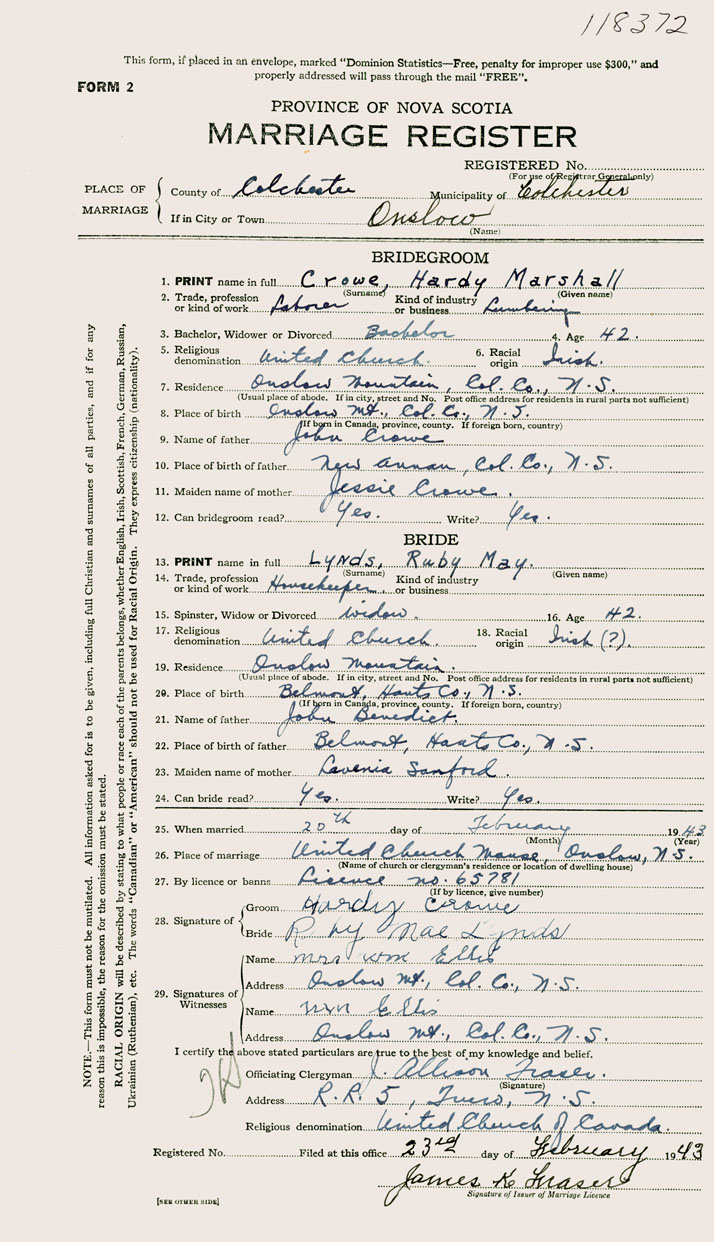 118372
This form, if placed in an envelope, marked "Dominion Statistics—Free, penalty for improper use $300," and
properly addressed will pass through the mail "FREE".
FORM 2
PROVINCE OF NOVA SCOTIA
MARRIAGE REGISTER
REGISTERED No.
(For use of Registrar General only)
PLACE OF MARRIAGE
County of Colchester Municipality of Colchester
If in City or Town Onslow
(Name)
BRIDEGROOM
1. PRINT name in full Crowe, Hardy Marshall
(Surname) (Given name)
2. Trade, profession or kind of work Laborer Kind of industry or business Lumbering
3. Bachelor, Widower or Divorced Bachelor 4. Age 42.
5. Religious denomination United Church. 6. Racial origin Irish.
7. Residence Onslow Mountain, Col. Co., N.S.
(Usual place of abode. If in city, street and No. Post office address for residents in rural parts not sufficient)
8. Place of birth Onslow Mt., Col. Co., N.S.
(If born in Canada, province, county. If foreign born, country)
9. Name of father John Crowe
10. Place of birth of father New Annan, Col. Co., N.S.
11. Maiden name of mother Jessie Crowe.
12. Can bridegroom read? Yes. Write? Yes.
BRIDE
13. PRINT name in full Lynds, Ruby May.
(Surname) (Given name)
14. Trade, profession or kind of work Housekeeper. Kind of industry or business
15. Spinster, Widow or Divorced Widow. 16. Age 42.
17. Religious denomination United Church. 18. Racial origin Irish (?).
19. Residence Onslow Mountain.
(Usual place of abode. If in city, street and No. Post office address for residents in rural parts not sufficient)
20. Place of birth Belmont, Hants Co., N.S.
(If born in Canada, province, county. If foreign born, country)
21. Name of father John Benedict.
22. Place of birth of father Belmont, Hants Co., N.S.
23. Maiden name of mother Lavenia Sanford.
24. Can bride read? Yes. Write? Yes.
25. When married 20th day of February 1943
(Month) (Year)
26. Place of marriage United Church Manse, Onslow, N.S.
(Name of church or clergyman's residence or location of dwelling house)
27. By licence or banns Lisence no. 65781
(If by licence, give number)
28. Signature of
Groom Hardy Crowe
Bride R by Mae Lynds
29. Signatures of Witnesses
Name Mrs Wm Ellis
Address Onslow Mt., Col. Co., N.S.
Name Wm Ellis
Address Onslow Mt., Col. Co., N.S.
I certify the above stated particulars are true to the best of my knowledge and belief.
Officiating Clergyman J. Allison Fraser.
(Signature)
Address R.R. 5, Truro, N.S.
Religious denomination United Church of Canada.
Registered No. Filed at this office 23rd day of February 1943
James K Fraser
Signature of Issuer of Marriage Licence
[SEE OTHER SIDE]
NOTE.—This form must not be mutilated. All information asked for is to be given, including full Christian and surnames of all parties, and if for any
reason this is impossible, the reason for the omission must be stated.
RACIAL ORIGIN will be described by stating to what people or race each of the parents belongs, whether English, Irish, Scottish, French, German, Russian,
Ukrainian (Ruthenian), etc. The words "Canadian" or "American" should not be used for Racial Origin. They express citizenship (nationality).